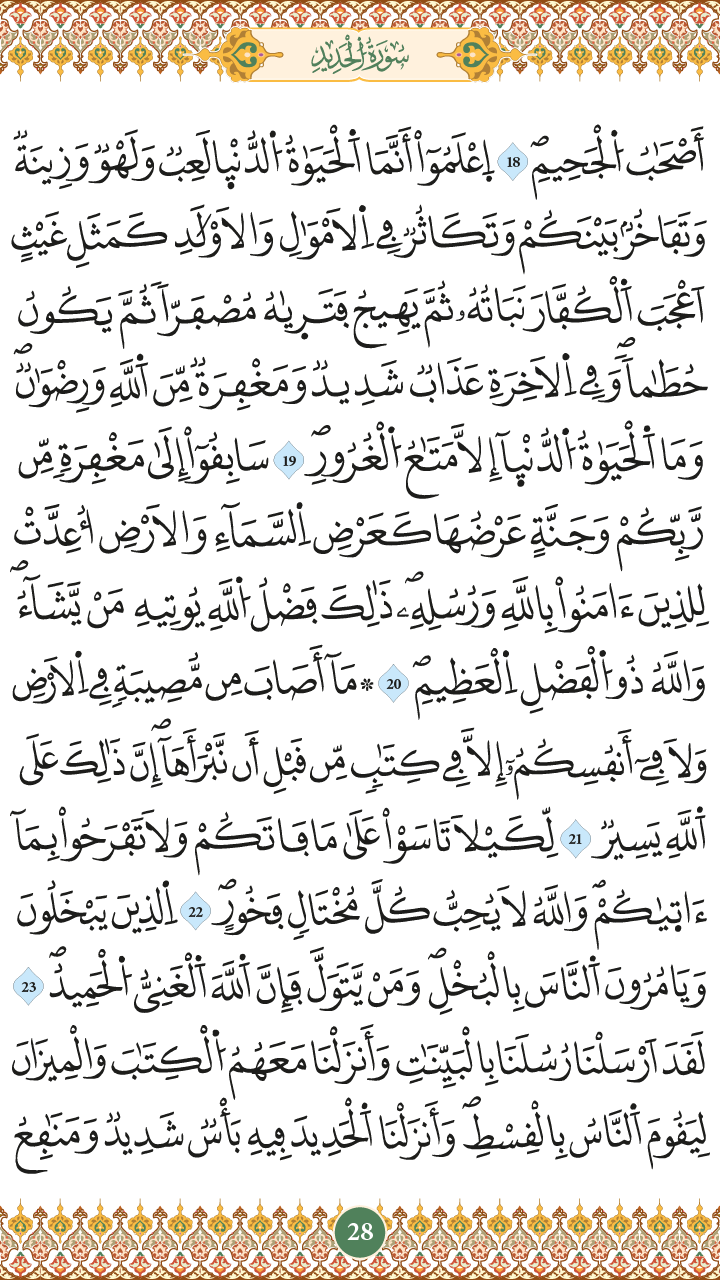 سُورَةُ الْحَدِيدِ
أَصْحَٰبُ اُ۬لْجَحِيمِۖ 18 اِ۪عْلَمُوٓاْ أَنَّمَا اَ۬لْحَيَوٰةُ اُ۬لدُّنْي۪ا لَعِبٞ وَلَهْوٞ وَزِينَةٞ
وَتَفَاخُرُۢ بَيْنَكُمْ وَتَكَاثُرٞ فِے اِ۬لَامْوَٰلِ وَالَاوْلَٰدِ كَمَثَلِ غَيْثٍ
اَعْجَبَ اَ۬لْكُفَّارَ نَبَاتُهُۥ ثُمَّ يَهِيجُ فَتَر۪يٰهُ مُصْفَرّاٗ ثُمَّ يَكُونُ
حُطَٰماٗۖ وَفِے اِ۬لَاخِرَةِ عَذَابٞ شَدِيدٞ وَمَغْفِرَةٞ مِّنَ اَ۬للَّهِ وَرِضْوَٰنٞۖ
وَمَا اَ۬لْحَيَوٰةُ اُ۬لدُّنْي۪آ إِلَّا مَتَٰعُ اُ۬لْغُرُورِۖ 19 سَابِقُوٓاْ إِلَىٰ مَغْفِرَةٖ مِّن
رَّبِّكُمْ وَجَنَّةٍ عَرْضُهَا كَعَرْضِ اِ۬لسَّمَآءِ وَالَارْضِ أُعِدَّتْ
لِلذِينَ ءَامَنُواْ بِاللَّهِ وَرُسُلِهِۦۖ ذَٰلِكَ فَضْلُ اُ۬للَّهِ يُوتِيهِ مَنْ يَّشَآءُۖ
وَاللَّهُ ذُو اُ۬لْفَضْلِ اِ۬لْعَظِيمِۖ 20 ۞ مَآ أَصَابَ مِن مُّصِيبَةٖ فِے اِ۬لَارْضِ
وَلَا فِےٓ أَنفُسِكُمُۥٓ إِلَّا فِے كِتَٰبٖ مِّن قَبْلِ أَن نَّبْرَأَهَآۖ إِنَّ ذَٰلِكَ عَلَى
اَ۬للَّهِ يَسِيرٞ 21 لِّكَيْلَا تَاسَوْاْ عَلَىٰ مَا فَاتَكُمْ وَلَا تَفْرَحُواْ بِمَآ
ءَات۪يٰكُمْۖ وَاللَّهُ لَا يُحِبُّ كُلَّ مُخْتَالٖ فَخُورٍۖ 22 اِ۬لذِينَ يَبْخَلُونَ
وَيَامُرُونَ اَ۬لنَّاسَ بِالْبُخْلِۖ وَمَنْ يَّتَوَلَّ فَإِنَّ اَ۬للَّهَ اَ۬لْغَنِيُّ اُ۬لْحَمِيدُۖ 23
لَقَدَ اَرْسَلْنَا رُسُلَنَا بِالْبَيِّنَٰتِ وَأَنزَلْنَا مَعَهُمُ اُ۬لْكِتَٰبَ وَالْمِيزَانَ
لِيَقُومَ اَ۬لنَّاسُ بِالْقِسْطِۖ وَأَنزَلْنَا اَ۬لْحَدِيدَ فِيهِ بَأْسٞ شَدِيدٞ وَمَنَٰفِعُ
28